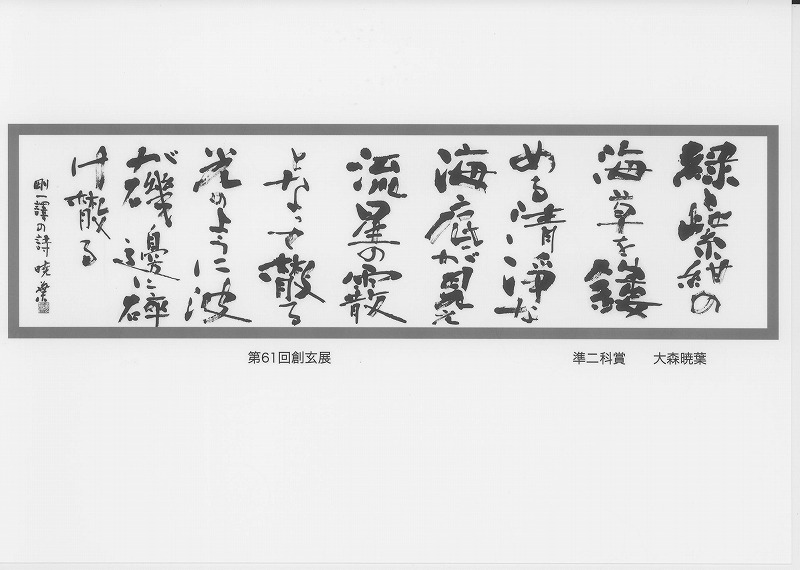 緑と紫紺の
海草を鏤
める清浄な
海底が見え
流星の霰
となって散る
光のように波
が磯邊に碎
け散る
剛一譯の詩 暁葉
第61回創玄展
準二科賞 大森暁葉